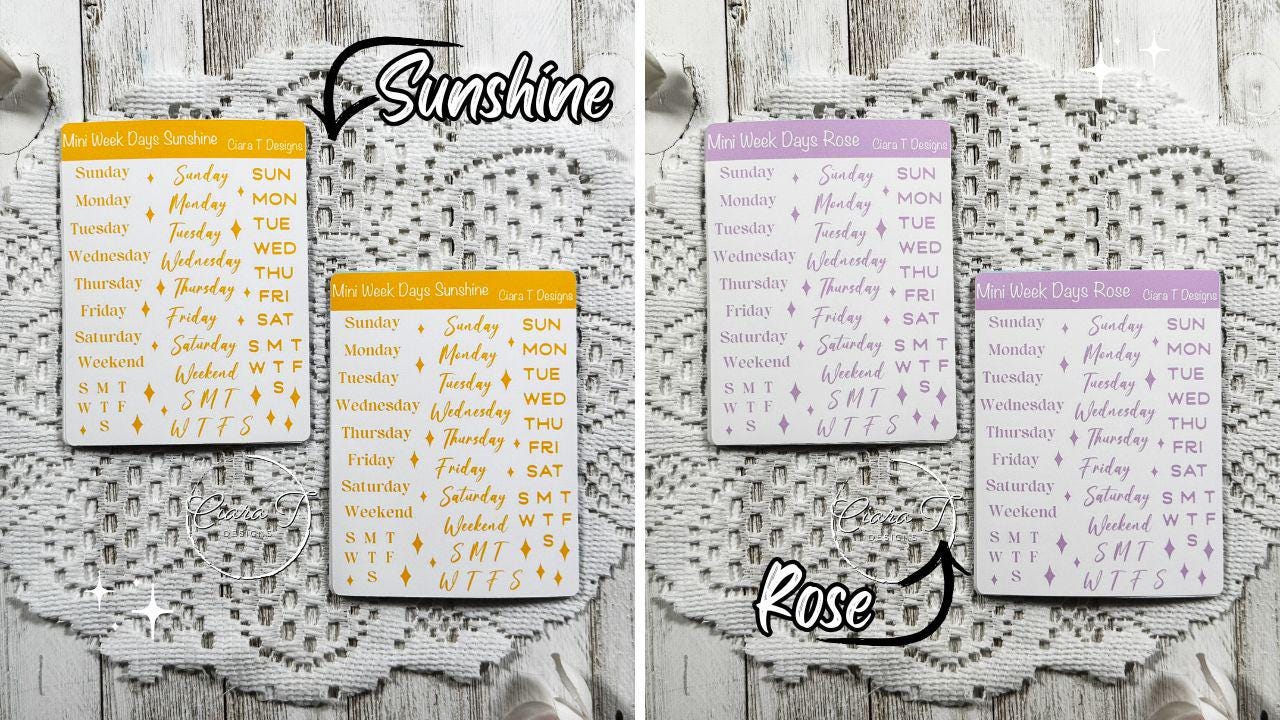 Sunshine
Mini Week Days Sunshine Ciara T Designs
Sunday Sunday SUN
Monday Monday MON
Tuesday Tuesday TUE
Wednesday Wednesday WED
Thursday Thursday THU
Friday Friday FRI
Saturday Saturday SAT
Weekend Weekend S M T
S M T S M T W T F
W T F W T F S S
S
Mini Week Days Sunshine Ciara T Designs
Sunday Sunday SUN
Monday Monday MON
Tuesday Tuesday TUE
Wednesday Wednesday WED
Thursday Thursday THU
Friday Friday FRI
Saturday Saturday SAT
Weekend Weekend S M T
S M T S M T W T F
W T F W T F S S
S
Ciara T
DESIGNS
Mini Week Days Rose Ciara T Designs
Sunday Sunday SUN
Monday Monday MON
Tuesday Tuesday TUE
Wednesday Wednesday WED
Thursday Thursday THU
Friday Friday FRI
Saturday Saturday SAT
Weekend Weekend S M T
S M T S M T W T F
W T F W T F S S
S
Mini Week Days Rose Ciara T Designs
Sunday Sunday SUN
Monday Monday MON
Tuesday Tuesday TUE
Wednesday Wednesday WED
Thursday Thursday THU
Friday Friday FRI
Saturday Saturday SAT
Weekend Weekend S M T
S M T S M T W T F
W T F W T F S S
S
Ciara T
DESIGNS
Rose